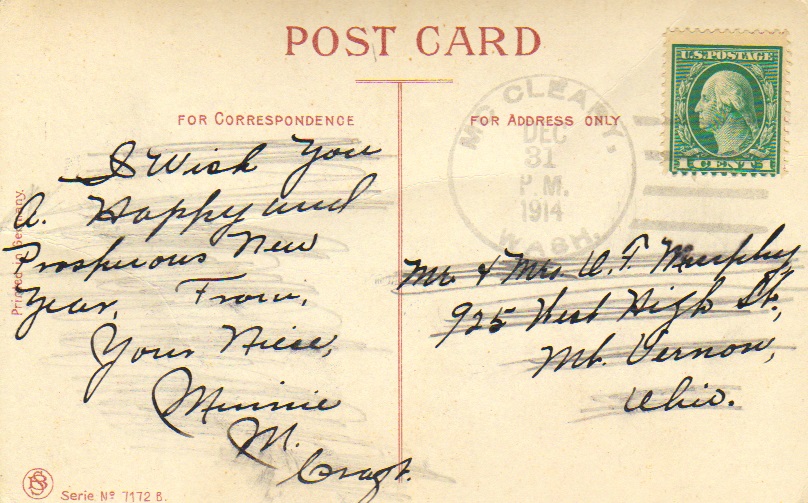 POST CARD
FOR CORRESPONDENCE
FOR ADDRESS ONLY
U.S. POSTAGE
1 CENT 1
MC CLEARY,
DEC
31
P.M.
1914
WASH.
I Wish You
A. Happy and
Prosperous New
Year, From,
Your Niese,
Minnie
M.
Mr. & Mrs. W. F. Murphy
925 West High St.,
Mt. Vernon,
Ohio.
Printed in Germany.
Serie No 7172 B.